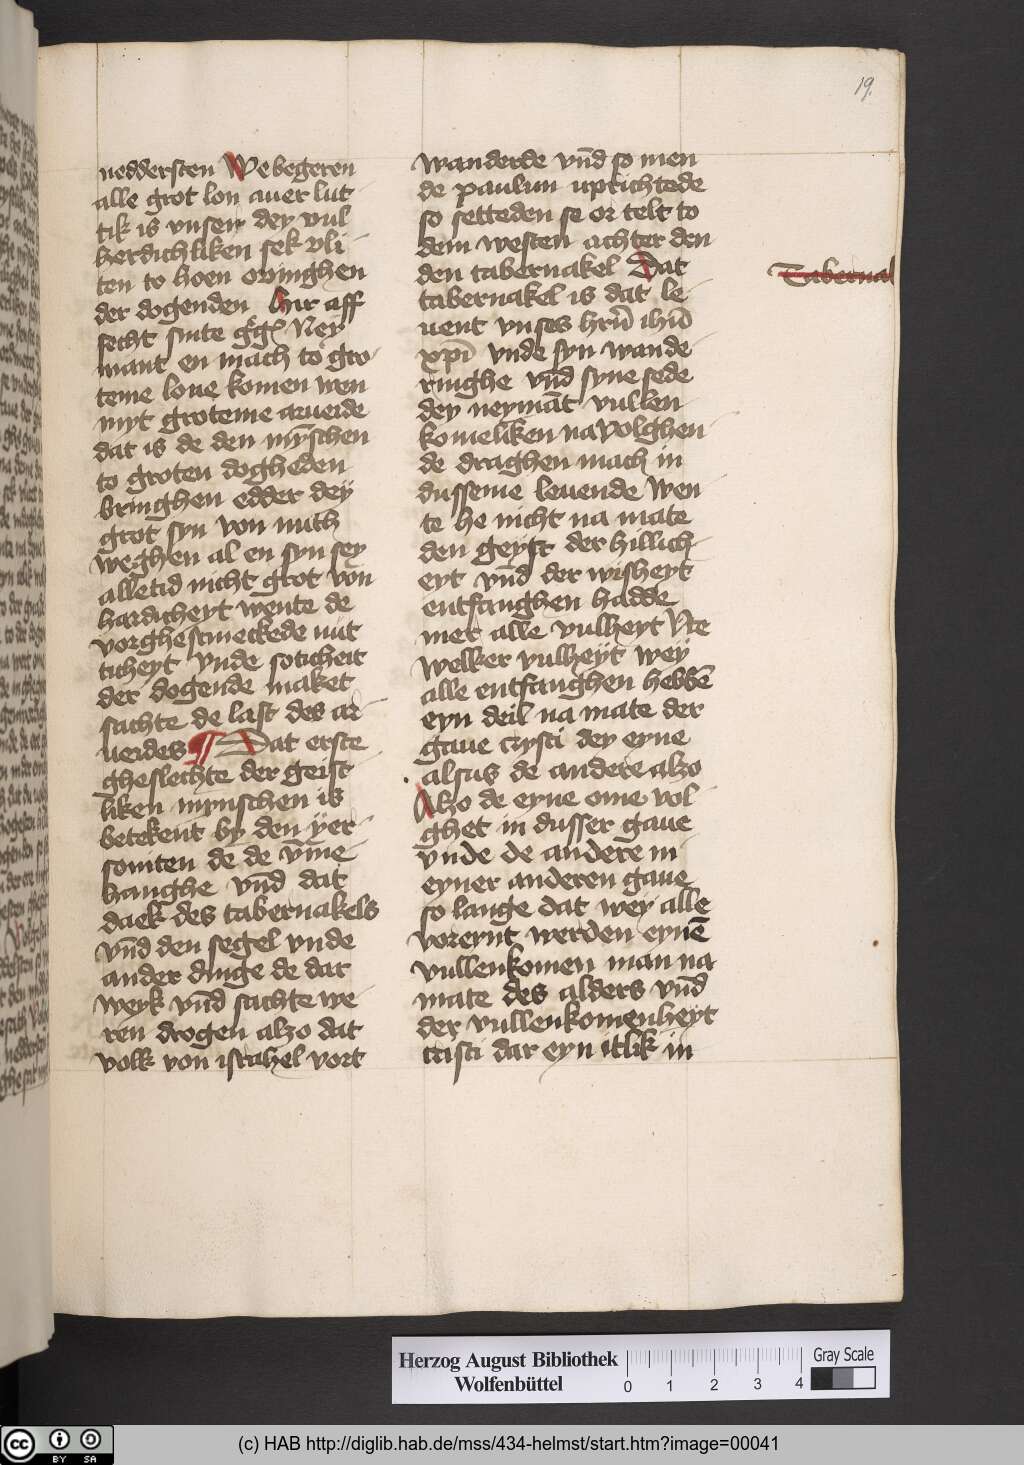 19.
neddersten We begeren
alle grot lon auer lut
tik is vnser dey vul
herdichliken sek vli
ten to hoen ouinghen
der dogenden Hir aff
secht sinte gͦgᵉ Ney
want en mach to gro
teme loue komen wen
myt groteme arueide
dat is de den mȳschen
to groten dogheden
bringhen edder deÿ
grot syn von nuth
weghen al en syn sey
alletid nicht grot von
hardicheyt wente de
vorghesmeckede nut
ticheyt vnde soticheit
der dogende maket
sachte de last des ar
ueides ¶ Dat erste
gheslechte der geist
liken mynschen is
betekent by den ÿer
somten de de vm̄e
hanghe vn̄d dat
daek des tabernakels
vn̄d den segel vnde
ander dinge de dar
weyk vn̄d sachte we
ren drogen alzo dat
volk von israhel vort
wanderde vn̄d so men
de paulun uprichtede
so setteden se or telt to
dem westen achter den
den tabernakel Dat
tabernakel is dat le
uent vnses hrn̄ ihū
xpī vnde syn wande
ringhe vn̄d syne sede
dey neymāt vullen
komeliken na volghen
de draghen mach in
dusseme leuende Wen
te he nicht na mate
den geyst der hillich
eyt vn̄d der wisheyt
entfanghen hadde
mer alle vulheyt Ute
welker vulheÿt wey
alle entfanghen hebbē
eyn deil na mate der
gaue cristi dey eyne
alsus de andere alzo
Alzo de eyne ome vol
ghet in dusser gaue
vnde de andere in
eyner anderen gaue
so lange dat wey alle
voreynt werden eynē
vullenkomen man na
mate des alders vn̄d
der vullenkomenheyt
cristi dar eyn itlik in
Tabernal
Herzog August Bibliothek
Wolfenbüttel
0 1 2 3 4
Gray Scale
cc BY SA
(c) HAB http://diglib.hab.de/mss/434-helmst/start.htm?image=00041